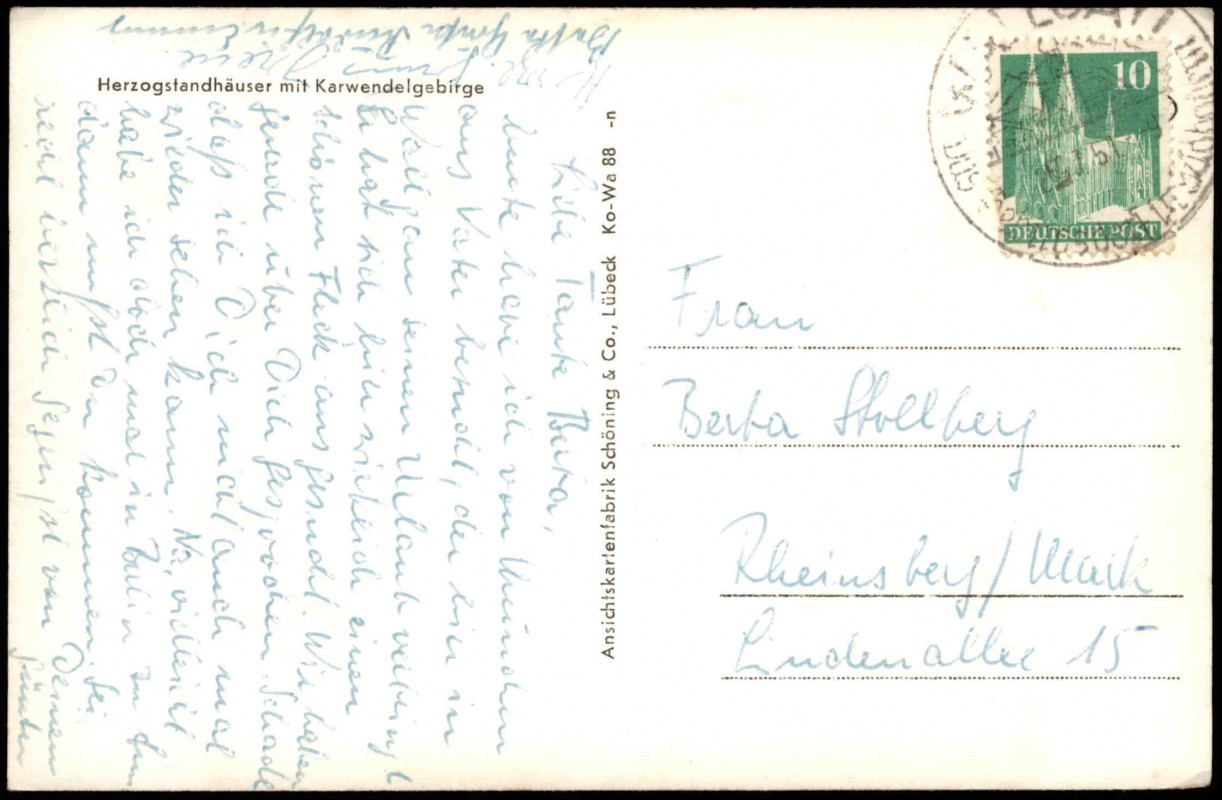 Herzogstandhäuser mit Karwendelgebirge
Liebe Tante Berta,
heute habe ich von München
aus Vater besucht, der hier in
Wallgau seinen Urlaub verbringt
Er hat sich hier wirklich einen
schönen Fleck ausgesucht. Wir haben
gerade über Dich gesprochen. Schade
daß ich Dich nicht auch mal
wieder sehen kann. Na, vielleicht
habe ich doch mal in Berlin zu tun
dann mußt Du kommen. Sei
recht herzlich gegrüßt von Deinem
Günter
Ansichtskartenfabrik Schöning & Co., Lübeck Ko-Wa 88 -n
10
DEUTSCHE POST
Frau
Berta Stollberg
Rheinsberg/Mark
Lindenallee 15